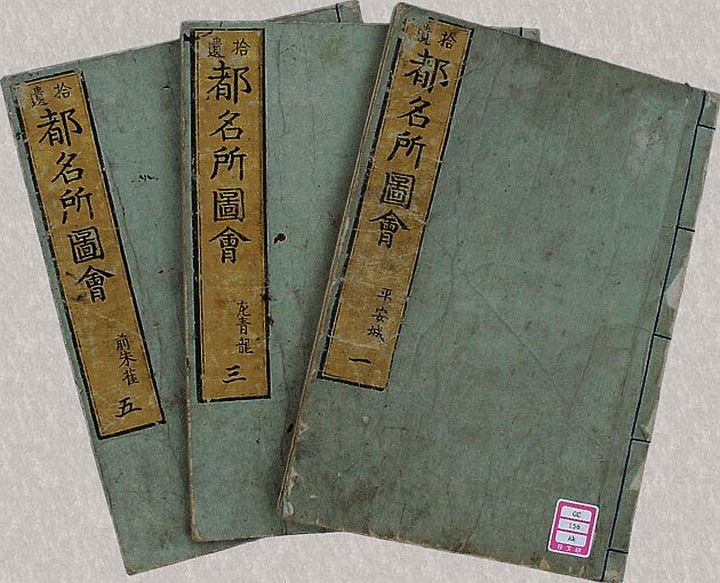 拾遺
都名所圖會
平安城
一
拾遺
都名所圖會
左青龍
三
拾遺
都名所圖會
前朱雀
五
GC
156
Ak
日文研